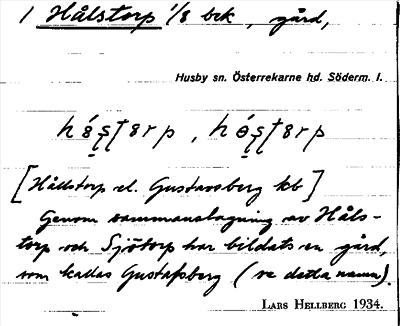 1 Hålstorp 1/8 bek, gård,
Husby sn. Österrekarne hd. Söderm. l.
[Hållstorp el. Gustavsberg kb]
Genom sammanslagning av Håls-
torp och Sjötorp har bildats en gård,
som kallas Gustafsberg (se detta namn).
LARS HELLBERG 1934.